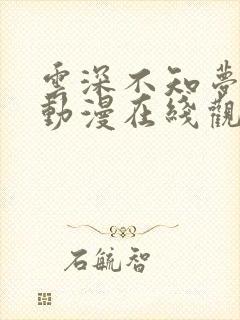 雲深不知夢
動漫在綫觀
石毓智